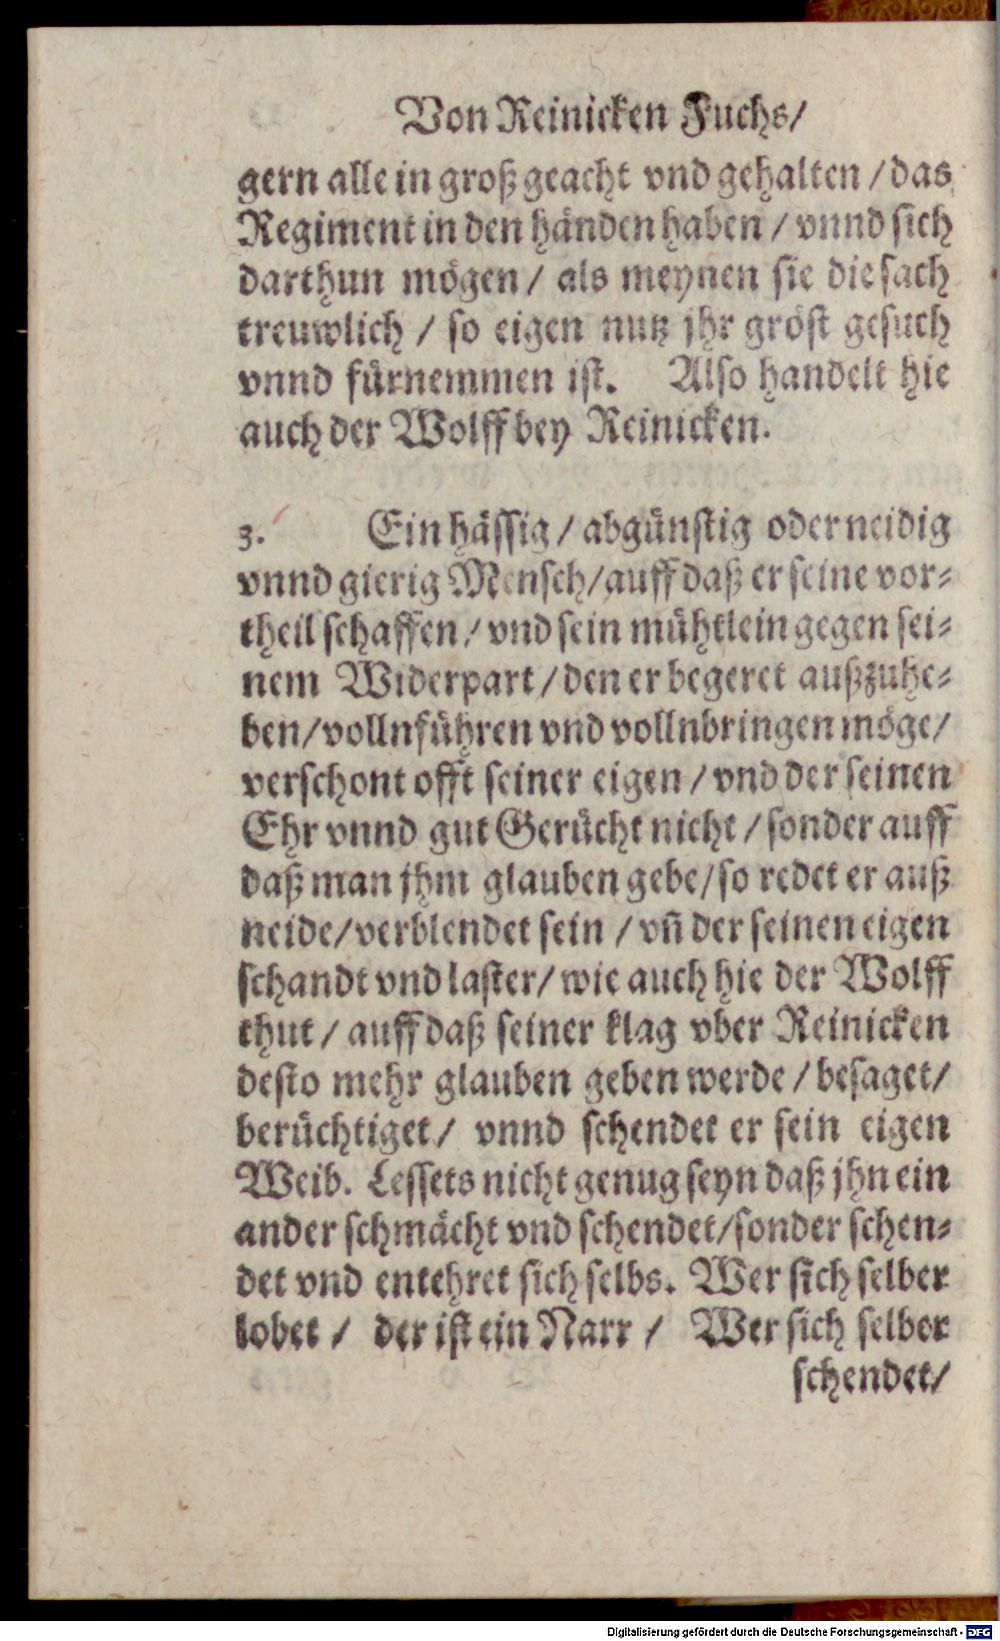 Von Reinicken Fuchs/
gern allein groß geacht vnd gehalten / das
Regiment in den händen haben / vnnd sich
darthun mögen / als meynen sie die sach
treuwlich / so eigen nutz jhr gröst gesuch
vnnd fürnemmen ist. Also handelt hie
auch der Wolff bey Reinicken.
3. Ein hässig / abgünstig oder neidig
vnnd gierig Mensch/auff daß er seine vor-
theil schaffen / vnd sein mühtlein gegen sei-
nem Widerpart / den er begeret außzuhe-
ben/vollnführen vnd vollnbringen möge/
verschont offt seiner eigen / vnd der seinen
Ehr vnnd gut Gerücht nicht / sonder auff
daß man jhm glauben gebe/so redet er auß
neide/verblendet sein / vñ der seinen eigen
schandt vnd laster/ wie auch hie der Wolff
thut / auff daß seiner klag vber Reinicken
desto mehr glauben geben werde / besaget/
berüchtiget / vnnd schendet er sein eigen
Weib. Lessets nicht genug seyn daß jhn ein
ander schmächt vnd schendet/sonder schen-
det vnd entehret sich selbs. Wer sich selber
lobet / der ist ein Narr / Wer sich selber
schendet/
Digitalisierung gefördert durch die Deutsche Forschungsgemeinschaft - DFG